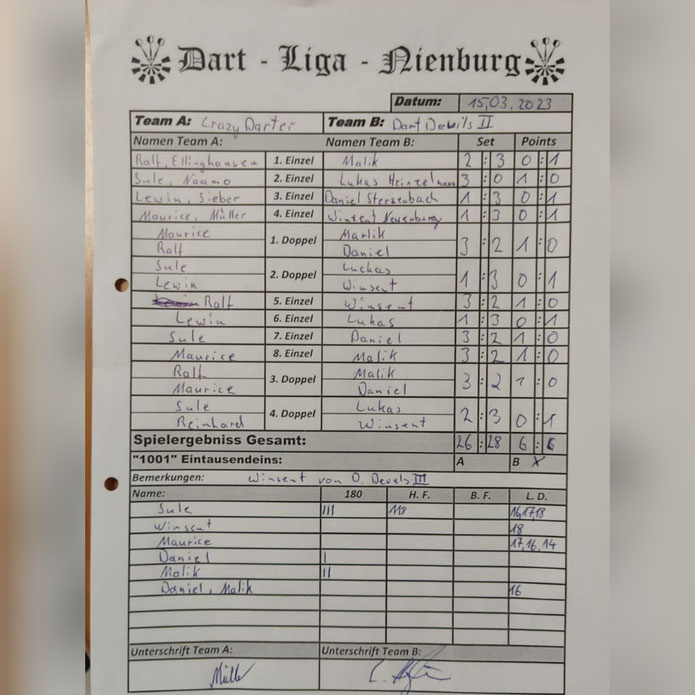 Dart - Liga - Nienburg
Datum: 15,03.2023
Team A: Crazy Darter Team B: Dart Devils II
Namen Team A: Namen Team B: Set Points
Ralf, Ellinghausen 1. Einzel Malik 2 : 3 0 : 1
Sule, Naamo 2. Einzel Lukas Heinzelmann 3 : 0 1 : 0
Lewin, Sieber 3. Einzel Daniel Sterzenbach 1 : 3 0 : 1
Maurice, Müller 4. Einzel Winsent Neuenburg 1 : 3 0 : 1
Maurice 1. Doppel Malik 3 : 2 1 : 0
Ralf Daniel
Sule 2. Doppel Luckas 1 : 3 0 : 1
Lewin Winsent
Ralf 5. Einzel Winsent 3 : 2 1 : 0
Lewin 6. Einzel Lukas 1 : 3 0 : 1
Sule 7. Einzel Daniel 3 : 2 1 : 0
Maurice 8. Einzel Malik 3 : 2 1 : 0
Ralf 3. Doppel Malik 3 : 2 1 : 0
Maurice Daniel
Sule 4. Doppel Lukas 2 : 3 0 : 1
Reinhard Winsent
Spielergebniss Gesamt: 26 : 28 6 : 6
"1001" Eintausendeins: A B X
Bemerkungen: Winsent von D. Devels III
Name: 180 H. F. B. F. L. D.
Sule III 118 16,17,18
Winsent 18
Maurice 17,16,14
Daniel I
Malik II
Daniel, Malik 16
Unterschrift Team A: Unterschrift Team B:
Müller